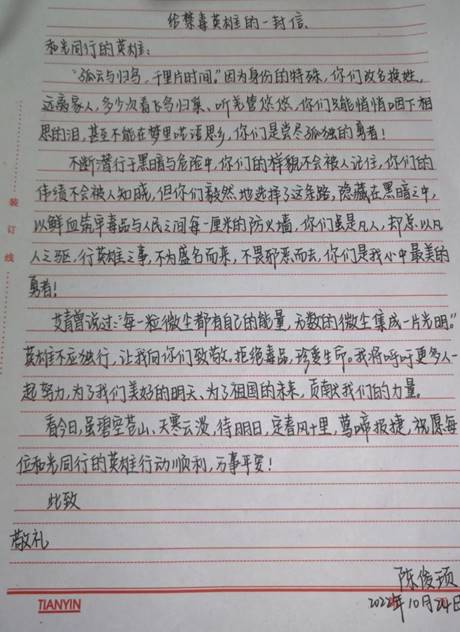 给禁毒英雄的一封信
和光同行的英雄：
“孤云与归鸟，千里片时间。”因为身份的特殊，你们改名换姓，
远离家人，多少次看飞鸟归巢、听羌管悠悠，你们只能悄悄咽下相
思的泪，甚至不能在梦里诺语思乡，你们是尝尽孤独的勇者！
不断潜行于黑暗与危险中，你们的样貌不会被人记住，你们的
伟绩不会被人知晓，但你们毅然地选择了这条路，隐藏在黑暗之中，
以鲜血筑牢毒品与人民之间每一厘米的防火墙，你们虽是凡人，却总以凡
人之躯，行英雄之事，不为盛名而来，不畏邪恶而去，你们是我心中最美的
勇者！
艾青曾说过：“每一粒微尘都有自己的能量，无数的微尘集成一片光明。”
英雄不应独行，让我向你们致敬。拒绝毒品，珍爱生命。我将呼吁更多人一
起努力，为了我们美好的明天、为了祖国的未来，贡献我们的力量。
看今日，虽碧空苍山、天寒云淡，待明日，定春风十里，莺啼报捷，祝愿每
位和光同行的英雄行动顺利，万事平安！
此致
敬礼
陈俊颀
2022年10月24日
装
订
线
TIANYIN